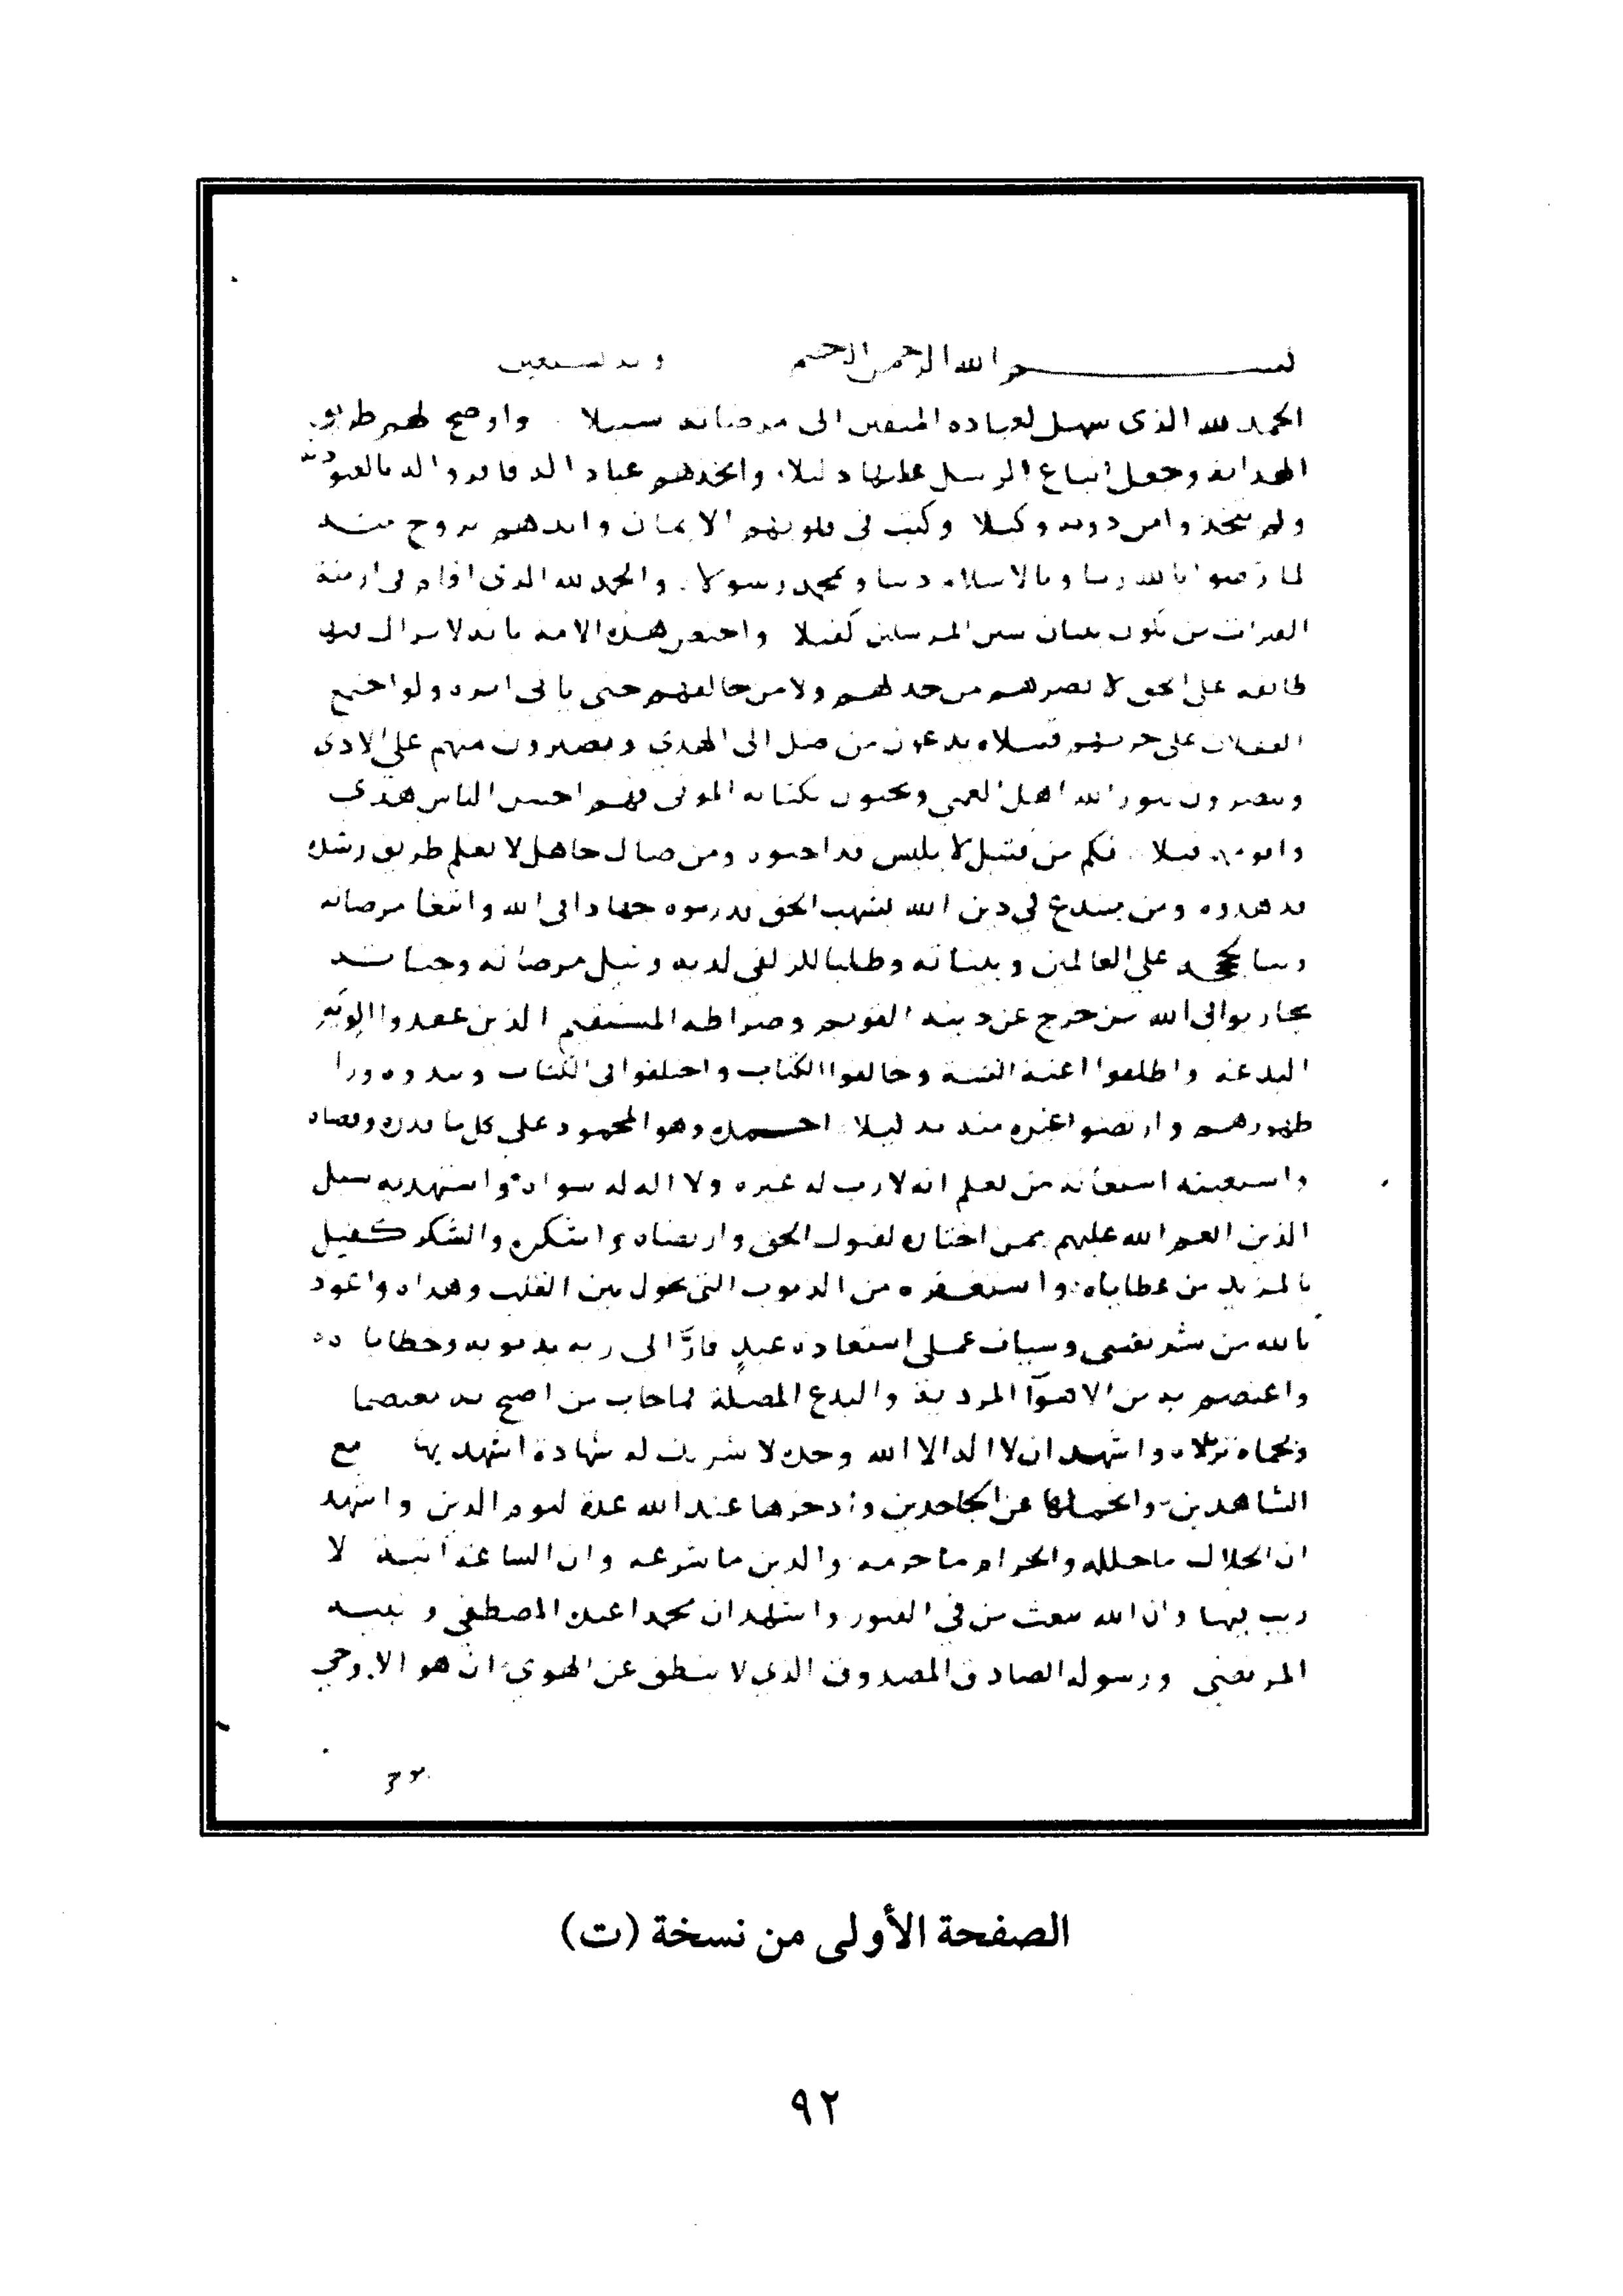 بسم الله الرحمن الرحيم وبه نستعين
الحمد لله الذى سهل لعباده المتقين الى مرضاته سبيلا واوضح لهم طريق
الهداية وجعل اتباع الرسل عليها دليلا واتخذهم عبادا له فاقروا له بالعبودية
ولم يتخذوا من دونه وكيلا وكتب فى قلوبهم الايمان وايدهم بروح منه
لما رضوا بالله ربا وبالاسلام دينا وبمحمد رسولا والحمد لله الذى اقام فى ازمنة
الفترات من يكون ببيان سنن المرسلين كفيلا واختص هذه الامة بانه لا يزال فيها
طائفة على الحق لا يضرهم من خذلهم ولا من خالفهم حتى ياتى امره ولو اجتمع
الثقلان على حربهم قبيلا يدعون من ضل الى الهدى ويصبرون منهم على الاذى
ويبصرون بنور الله اهل العمى ويحيون بكتابه الموتى فهم احسن الناس هديا
واقومهم قيلا فكم من قتيل لابليس قد احيوه ومن ضال جاهل لا يعلم طريق رشده
قد هدوه ومن مبتدع فى دين الله بشهب الحق قد رموه جهادا فى الله وابتغا مرضاته
وبيانا لحججه على العالمين وبيناته وطلبا للزلفى لديه ونيل مرضاته وجناته
فحاربوا فى الله من خرج عن دينه القويم وصراطه المستقيم الذين عقدوا الوية
البدعة واطلقوا اعنة الفتنة وخالفوا الكتاب واختلفوا فى الكتاب ونبذوه ورا
ظهورهم وارتضوا غيره منه بديلا احمده وهو المحمود على كل ما قدره وقضاه
واستعينه استعانة من يعلم انه لا رب له غيره ولا اله له سواه واستهديه سبيل
الذين انعم الله عليهم ممن اختاره لقبول الحق وارتضاه واشكره والشكر كفيل
بالمزيد من عطاياه واستغفره من الذنوب التى تحول بين القلب وهداه واعوذ
بالله من شر نفسى وسيات عملى استعاذة عبد فار الى ربه بذنوبه وخطاياه
واعتصم به من الاهوآ المردية والبدع المضلة فما خاب من اصبح به معتصما
وبحماه نزيلا واشهد ان لا اله الا الله وحده لا شريك له شهادة اشهد بها مع
الشاهدين واتحملها عن الجاحدين وادخرها عند الله عدة ليوم الدين واشهد
ان الحلال ما حلله والحرام ما حرمه والدين ما شرعه وان الساعة آتية لا
ريب فيها وان الله يبعث من فى القبور واشهد ان محمدا عبده المصطفى ونبيه
المرتضى ورسوله الصادق المصدوق الذى لا ينطق عن الهوى ان هو الا وحى
الصفحة الأولى من نسخة (ت)
٩٢